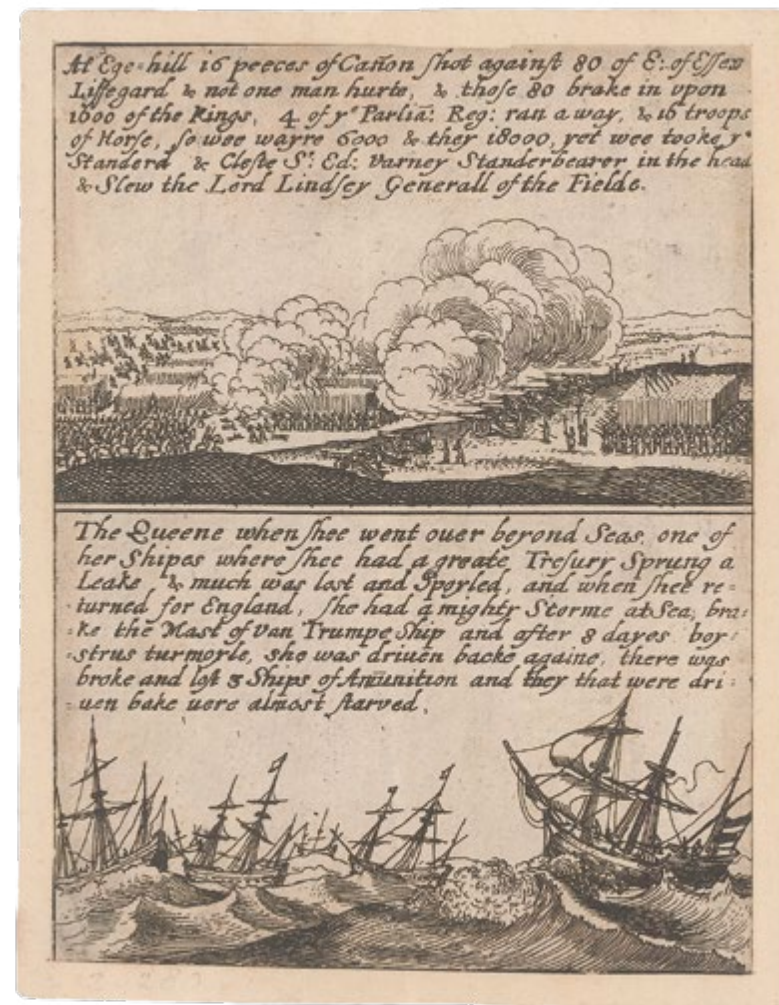 At Ege-hill 16 peeces of Cañon ſhot againſt 80 of E: of Eſſex
Liffegard & not one man hurte, & thoſe 80 brake in vpon
1600 of the Kings, 4 of yᵉ Parliā: Reg: ran a way, & 16 troops
of Horſe, ſo wee wayre 6000 & they 18000, yet wee tooke yᵉ
Standerd & Clefte Sʳ: Ed: Varney Standerbearer in the head
& Slew the Lord Lindſey Generall of the Fielde.
The Queene when ſhee went ouer beyond Seas, one of
her Shipes where ſhee had a greate Treſury Sprung a
Leake, & much was lost and Spoyled, and when ſhee re-
-turned for England, ſhe had a mighty Storme at Sea, bra:
:ke the Mast of Van Trumpe Ship and after 8 dayes boy:
:strus turmoyle, she was driuen backe againe, there was
broke and loſt 3 Ships of Amunition and they that were dri:
:uen bake were almost ſtarved.